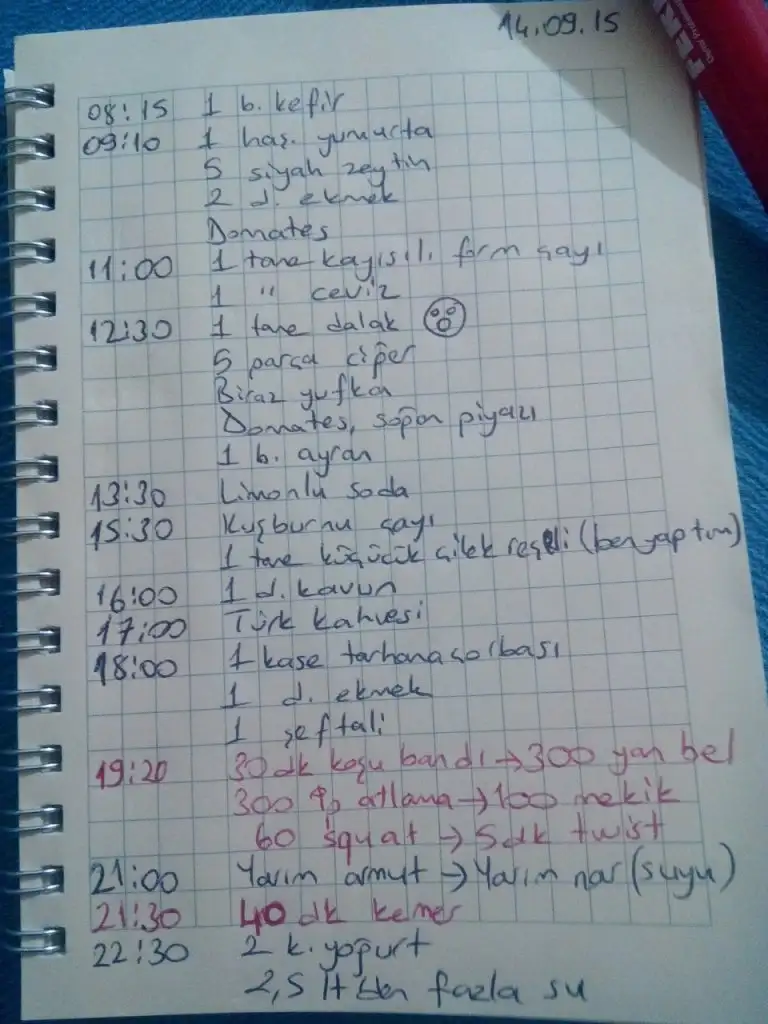 14.09.15
08:15 1 b. kefir
09:10 1 haş. yumurta
5 siyah zeytin
2 d. ekmek
Domates
11:00 1 tane kayısılı form çayı
1 " ceviz
12:30 1 tane dalak
5 parça ciğer
Biraz yufka
Domates, soğan piyazı
1 b. ayran
13:30 Limonlu soda
15:30 Kuşburnu çayı
1 tane küçücük çilek reçeli (ben yaptım)
16:00 1 d. kavun
17:00 Türk kahvesi
18:00 1 kase tarhana çorbası
1 d. ekmek
1 şeftali
19:20 30 dk koşu bandı → 300 yan bel
300 ip atlama → 100 mekik
60 squat → 5 dk twist
21:00 Yarım armut → Yarım nar (suyu)
21:30 40 dk kemer
22:30 2 k. yoğurt
2,5 lt den fazla su